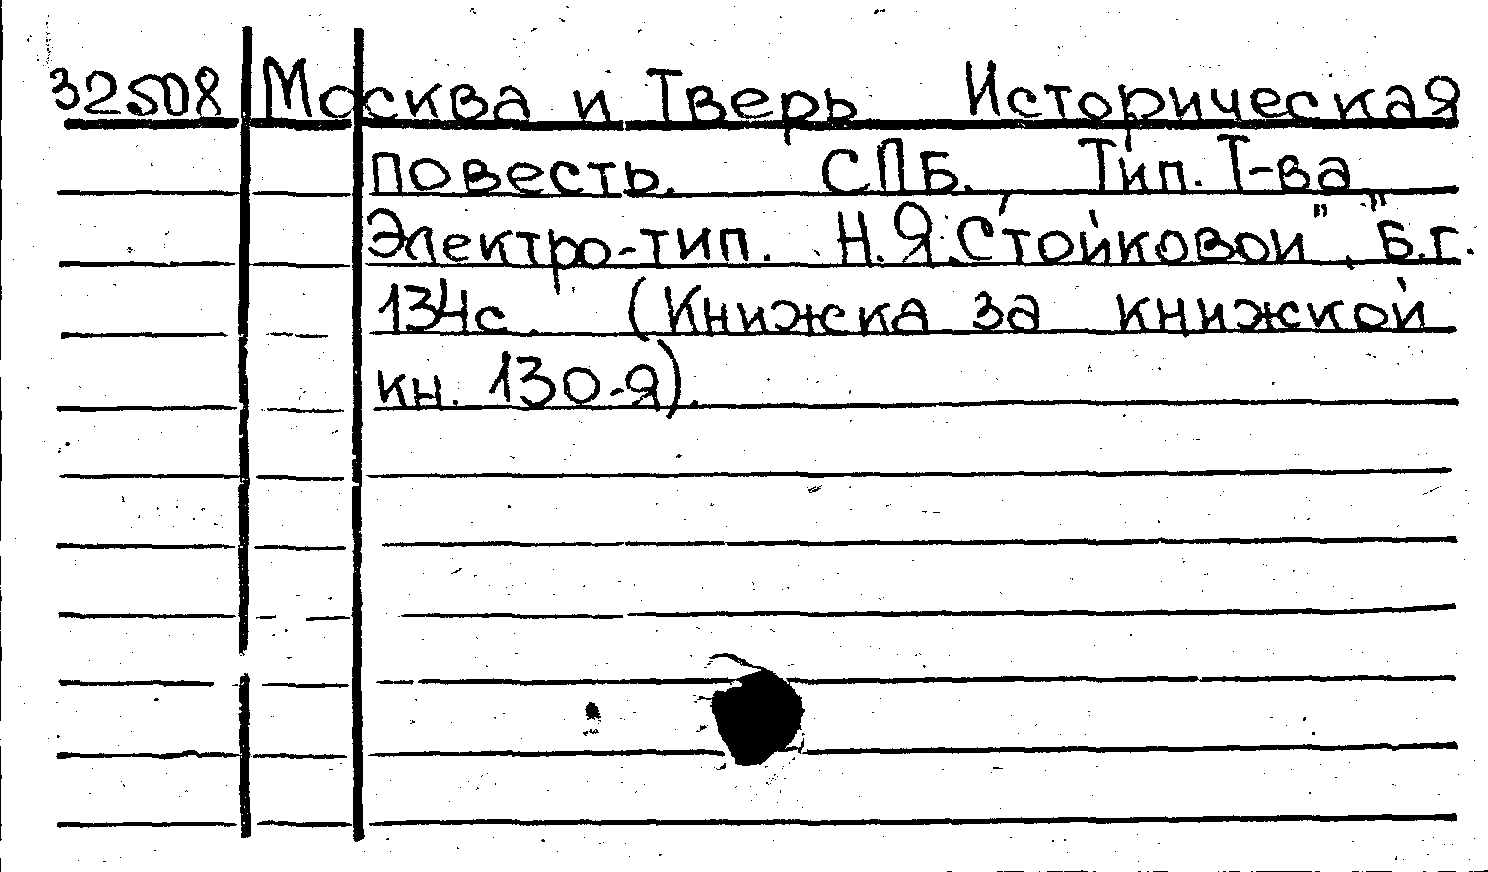 32508 Москва и Тверь Историческая
повесть. СПБ. Тип. Т-ва
Электро-тип. Н.Я.Стойковой", "Б.г.
134с. (Книжка за книжкой
кн. 130-я).